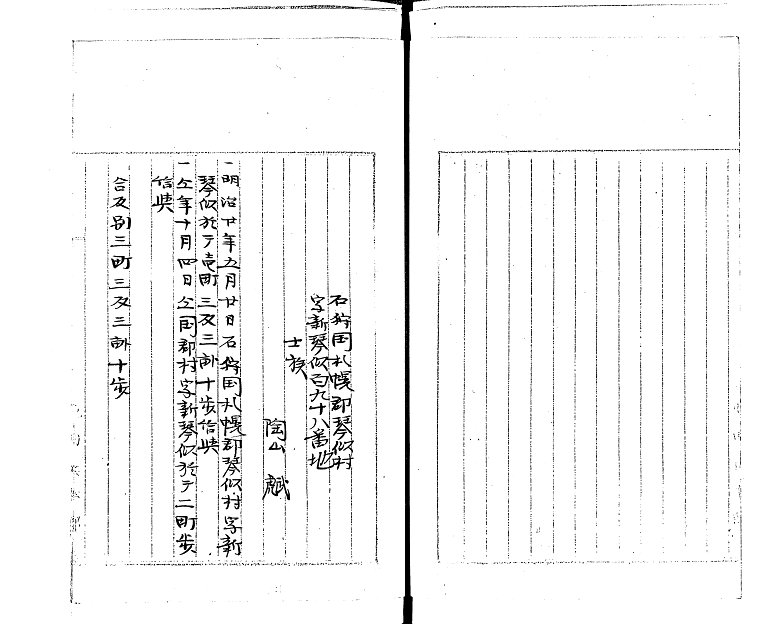 石狩国札幌郡琴似村
字新琴似百九十八番地
士族
陶山
一明治廿年五月廿日石狩国札幌郡琴似村字新
琴似於テ壱町三反三畝十歩給与
一仝年十月四日仝国郡村字新琴似於テ二町歩
給与
合反別三町三反三畝十歩